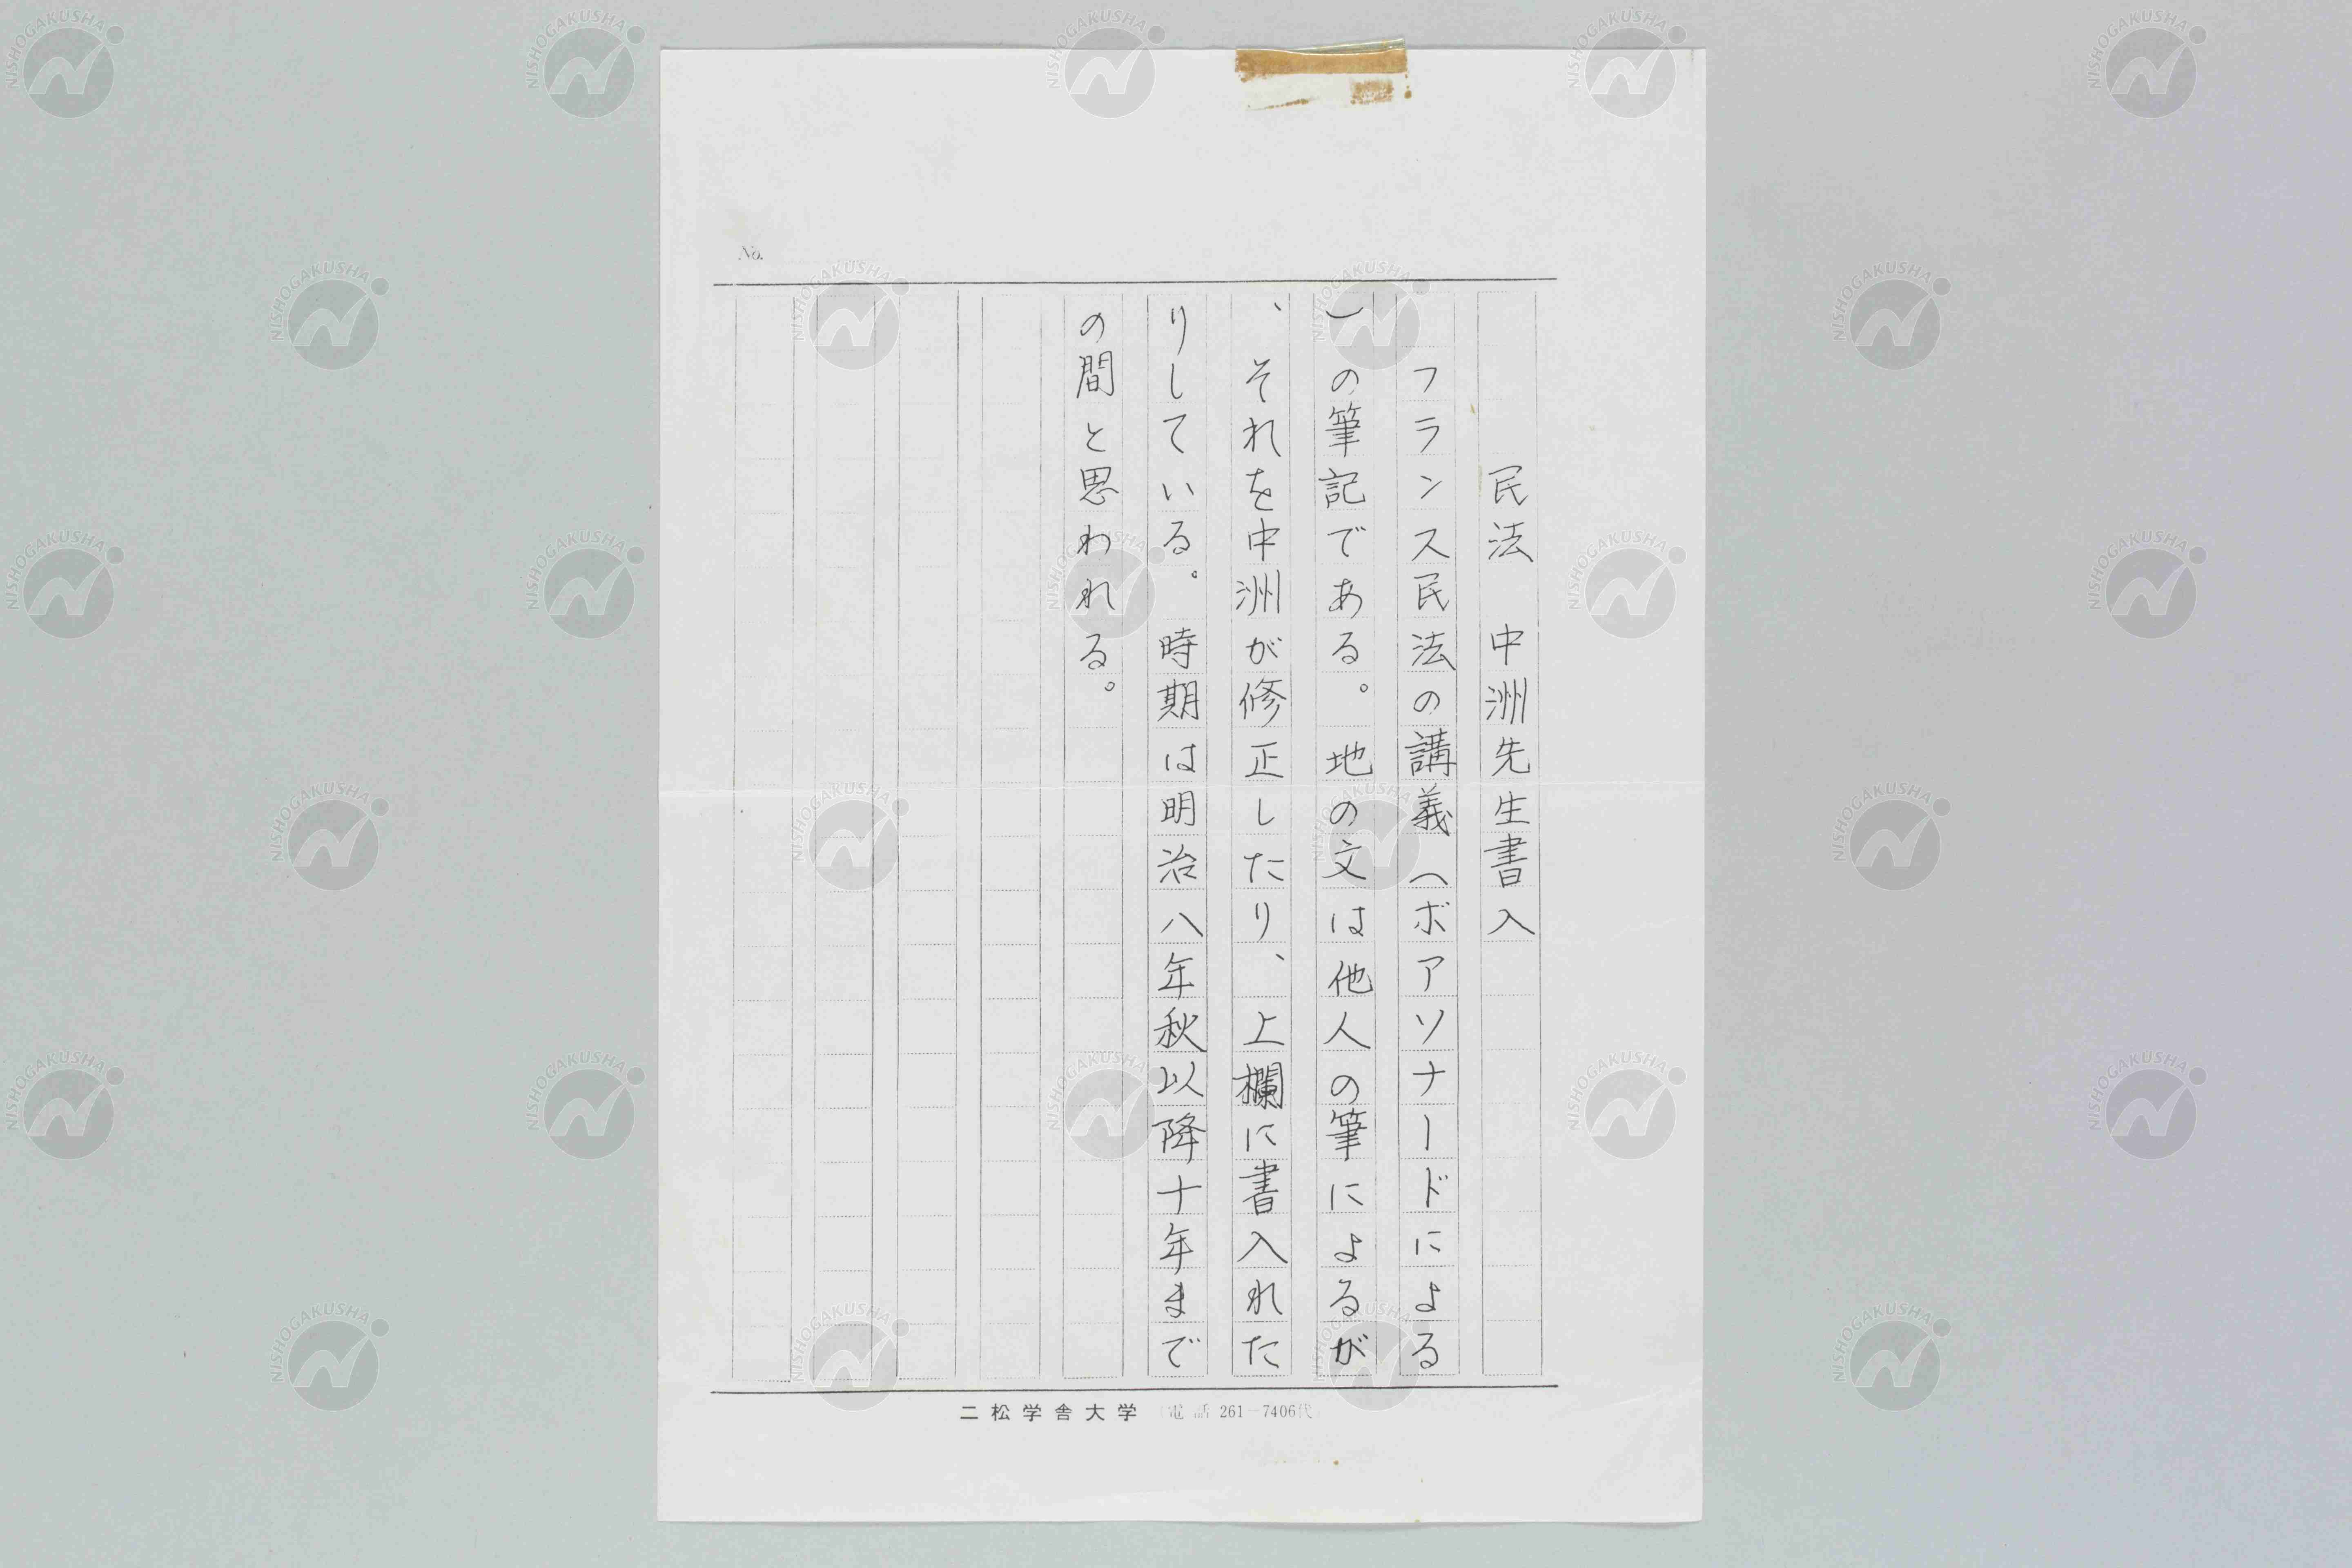 No.
民法　中洲先生書入
フランス民法の講義（ボアソナードによる
）の筆記である。地の文は他人の筆によるが
、それを中洲が修正したり、上欄に書入れた
りしている。時期は明治八年秋以降十年まで
の間と思われる。
二松学舎大学（電話 261－7406代）
NISHOGAKUSHA